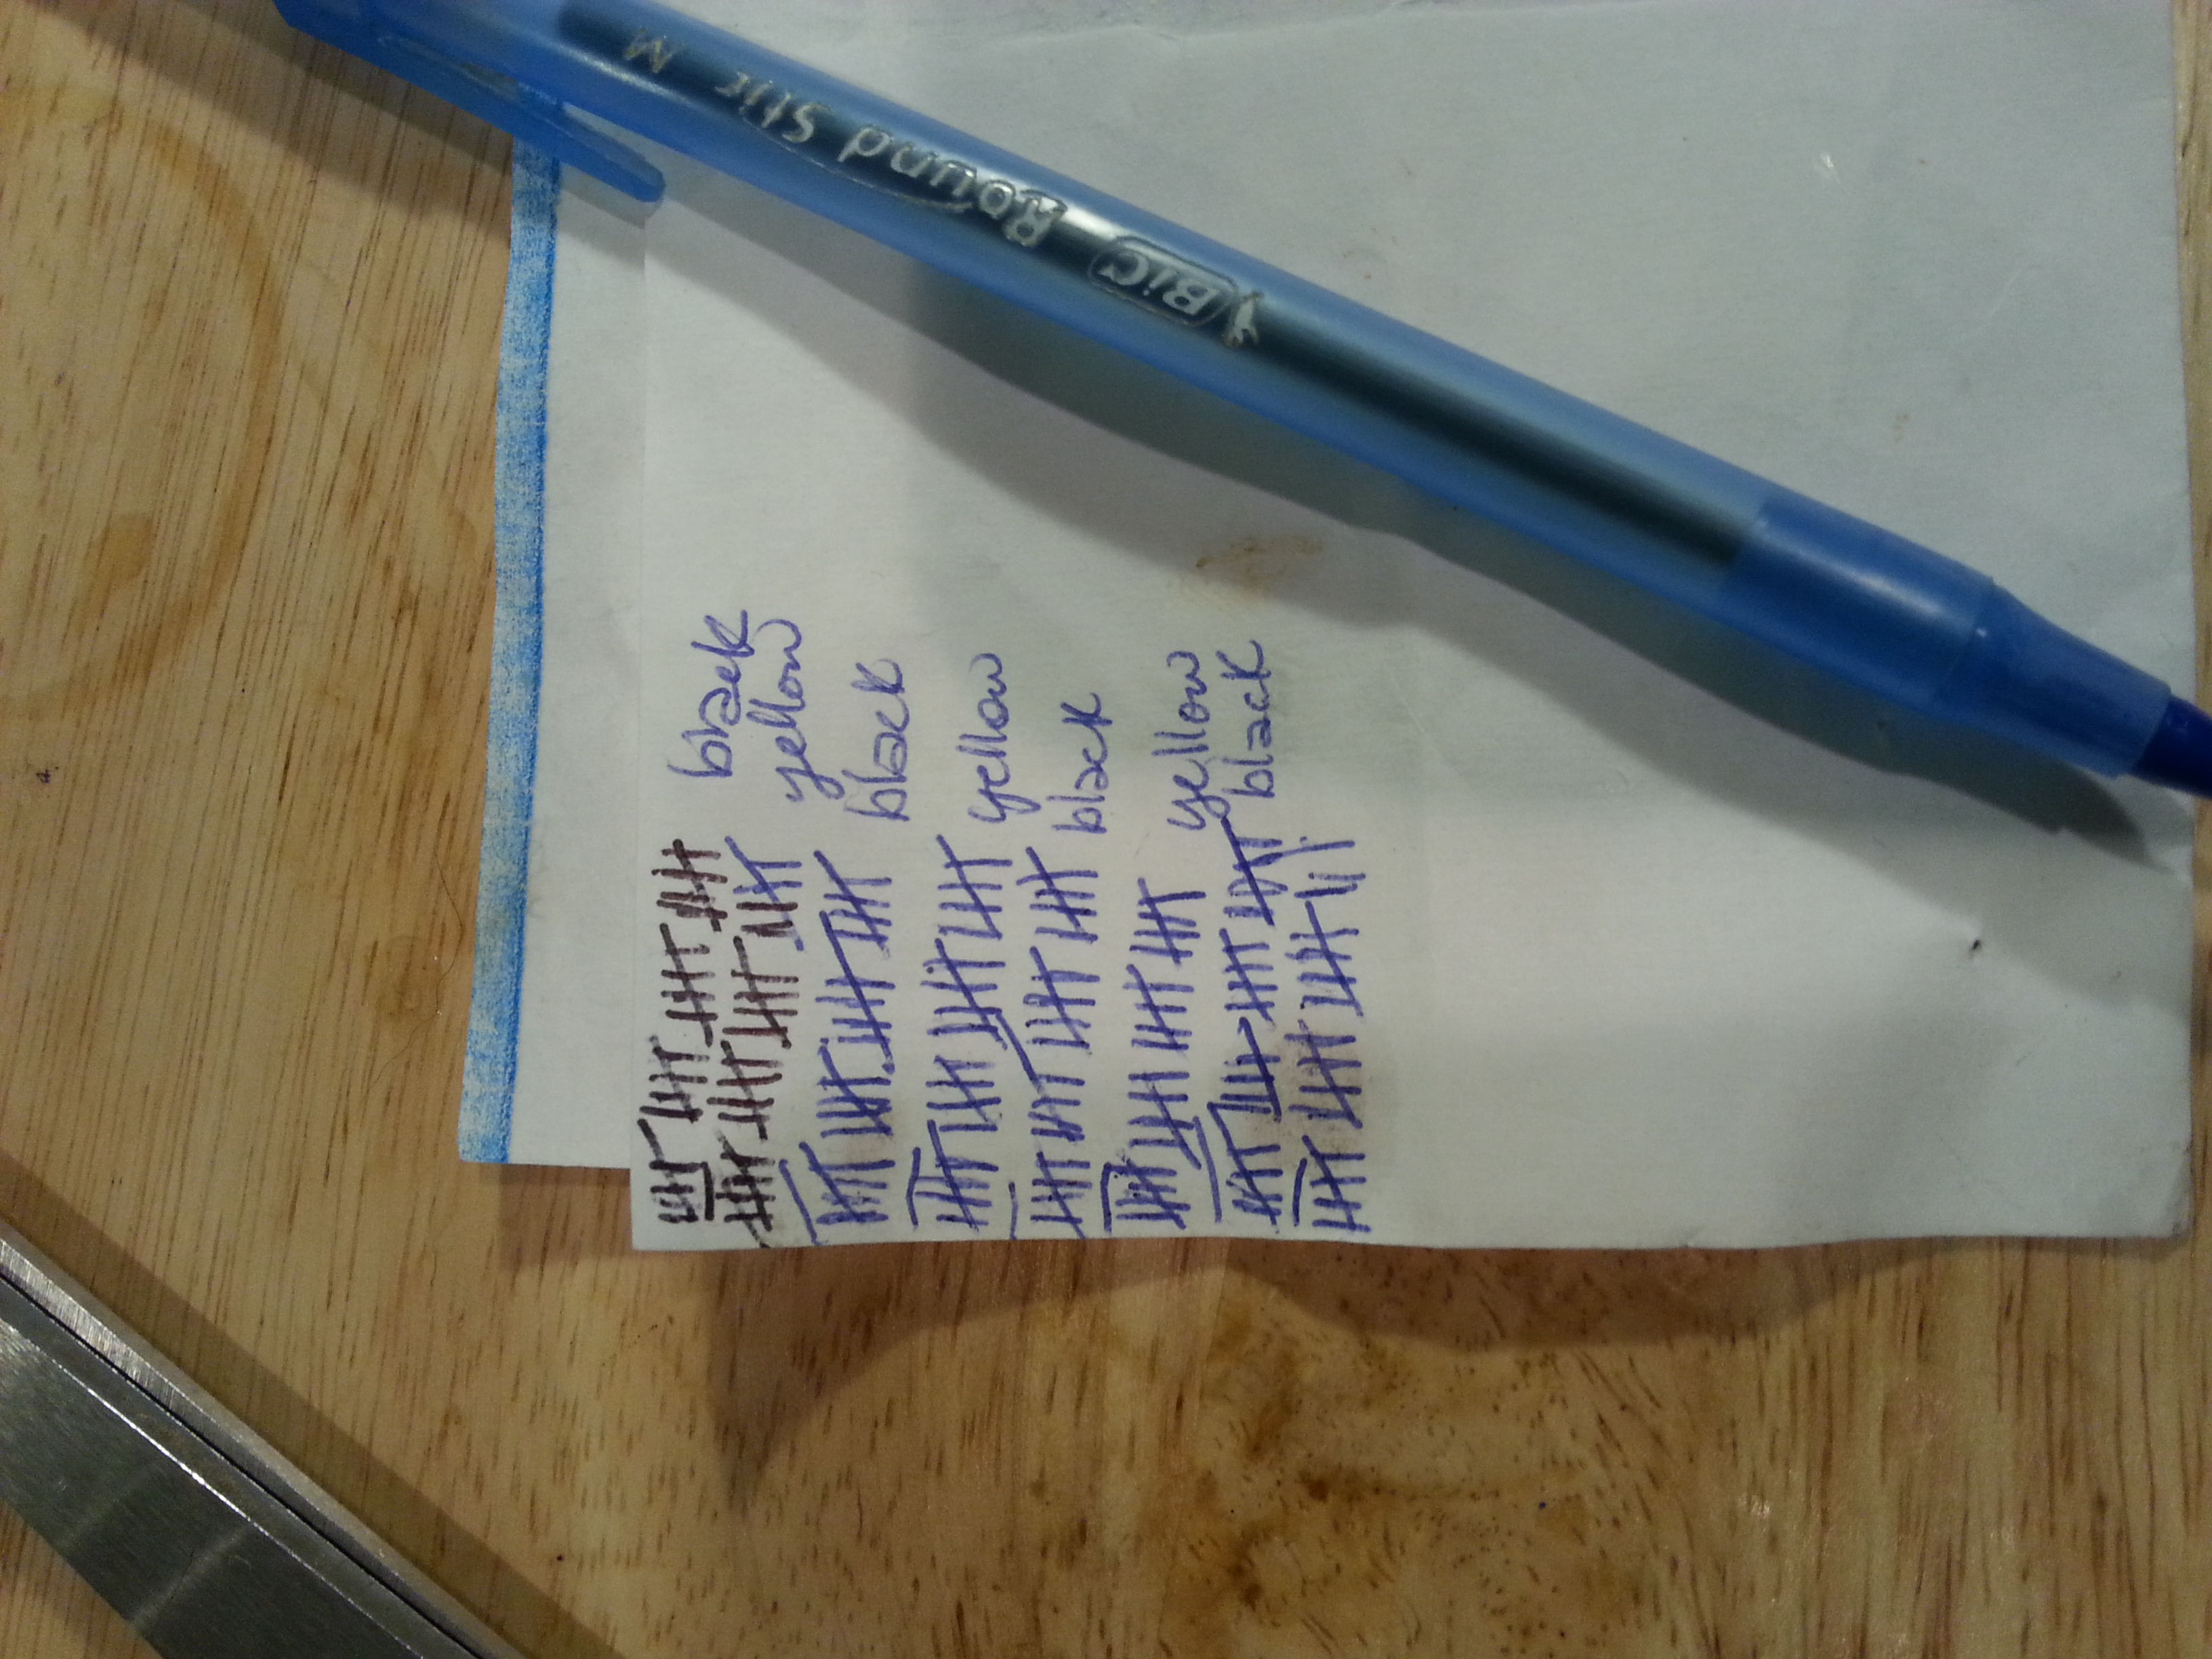 black
yellow
black
yellow
black
yellow
black
BIC Round Stic M